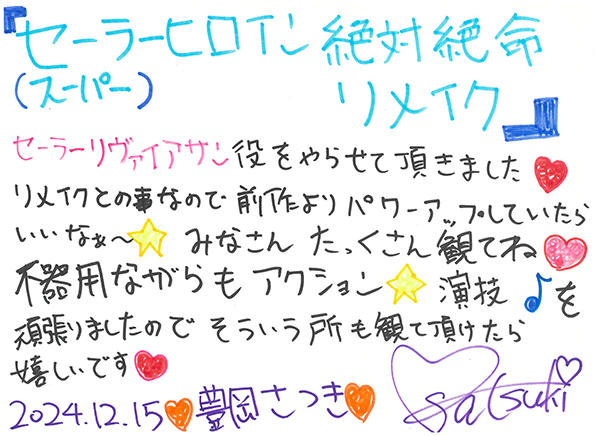 『セーラーヒロイン 絶対絶命
(スーパー) リメイク』
セーラーリヴァイアサン役をやらせて頂きました♥
リメイクとの事なので前作よりパワーアップしていたら
いいなぁ〜★ みなさん たっくさん観てね♥
不器用ながらも アクション★ 演技♪を
頑張りましたので そういう所も観て頂けたら
嬉しいです♥
2024.12.15♥豊岡さつき♥ Satsuki♡